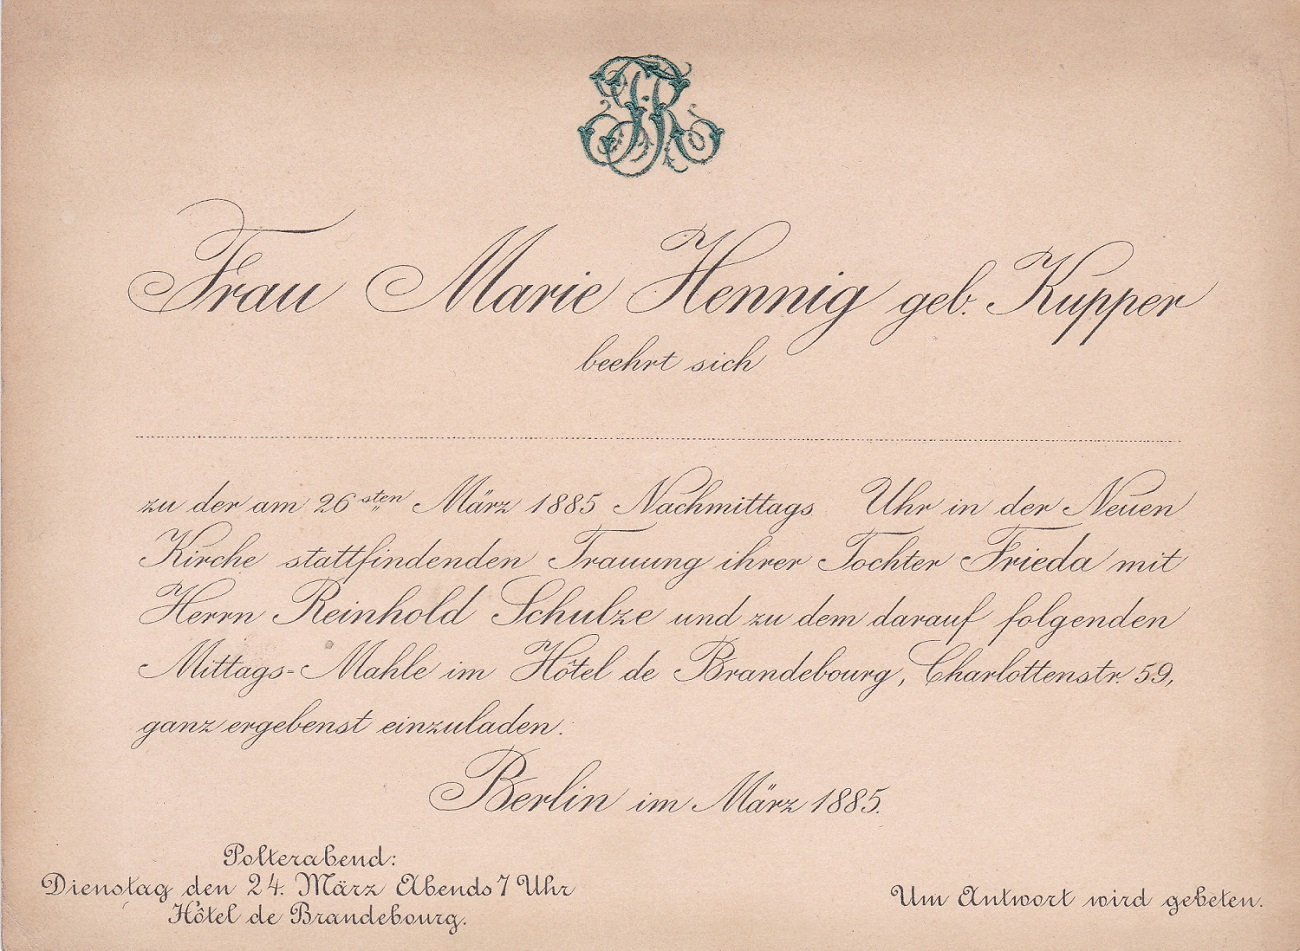 FR
Frau Marie Hennig geb. Kupper
beehrt sich
zu der am 26sten März 1885 Nachmittags Uhr in der Neuen
Kirche stattfindenden Trauung ihrer Tochter Frieda mit
Herrn Reinhold Schulze und zu dem darauf folgenden
Mittags-Mahle im Hôtel de Brandebourg, Charlottenstr. 59,
ganz ergebenst einzuladen.
Berlin im März 1885.
Polterabend:
Dienstag den 24. März Abends 7 Uhr
Hôtel de Brandebourg.
Um Antwort wird gebeten.